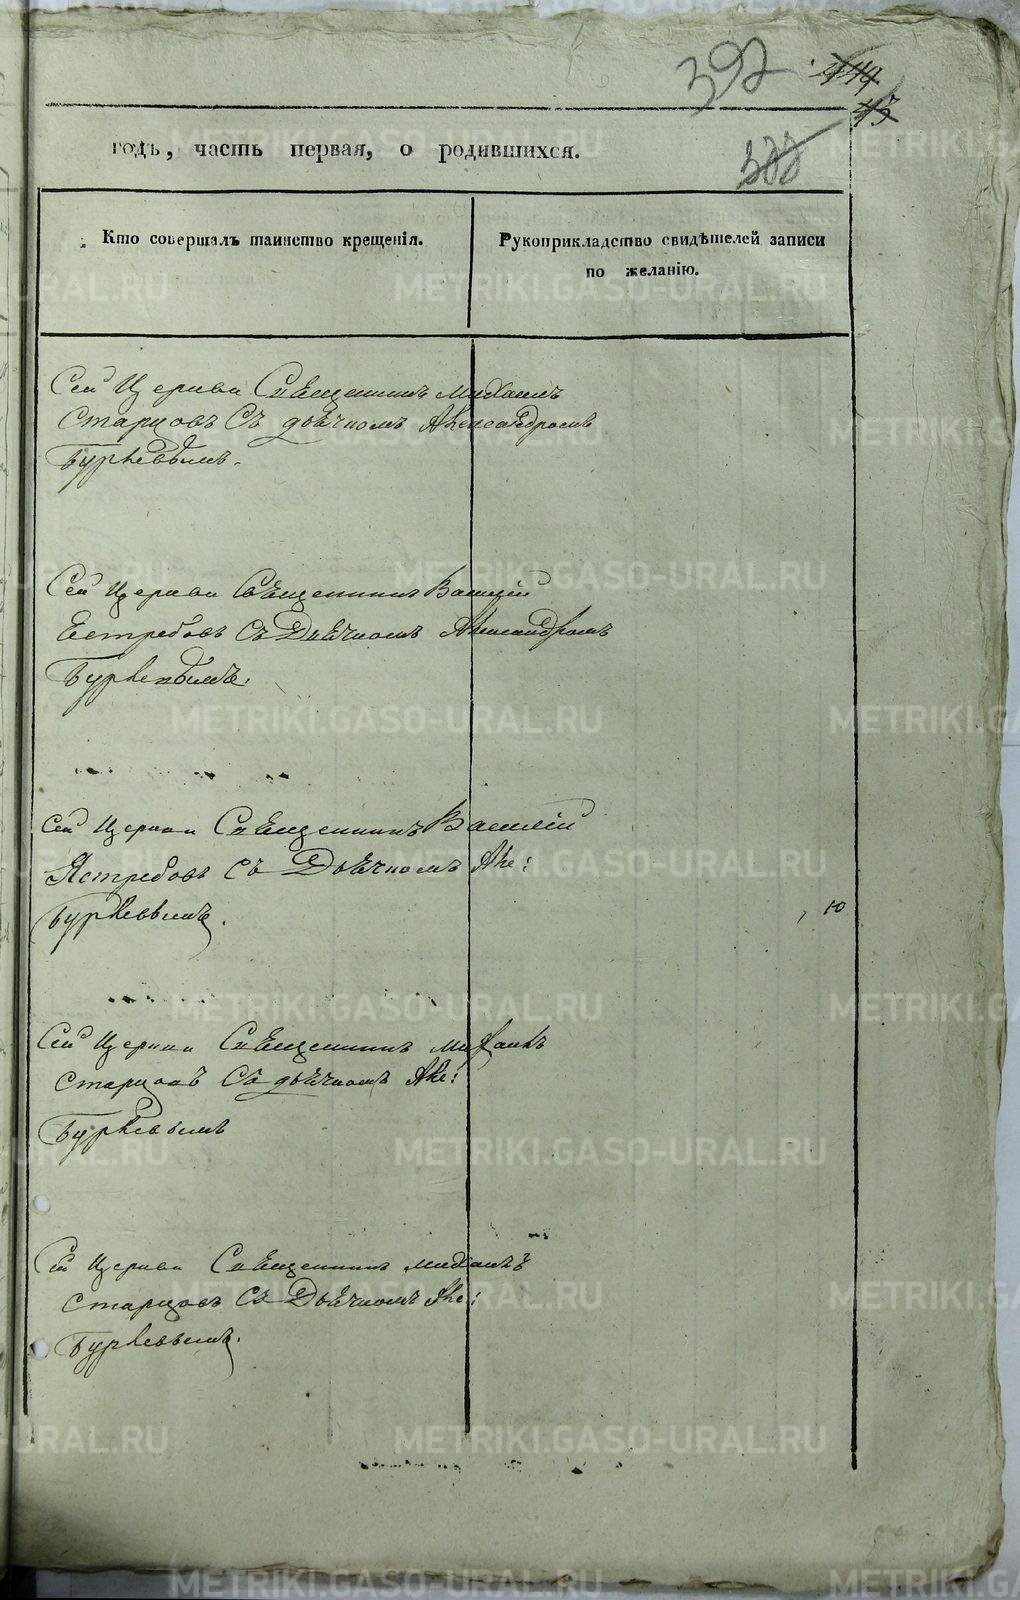 392
444.
43
годъ, часть первая, о родившихся.
388
Кто совершалъ таинство крещенія.
Рукоприкладство свидѣтелей записи
по желанію.
Сей Церкви Священникъ Михаилъ
Старцовъ Съ дьячкомъ Александромъ
Буркевымъ.
Сей Церкви Священникъ Василій
Естребовъ Съ Дьячкомъ Александромъ
Буркевымъ.
Сей Церкви Священникъ Василій
Ястребовъ Съ Дьячкомъ Але:
Буркевымъ.
10
Сей Церкви Священникъ Михаилъ
Старцовъ Съ дьячкомъ Але:
Буркевымъ
Сей Церкви Священникъ Михаилъ
Старцовъ Съ Дьячкомъ Але:
Буркевымъ.
METRIKI.GASO-URAL.RU